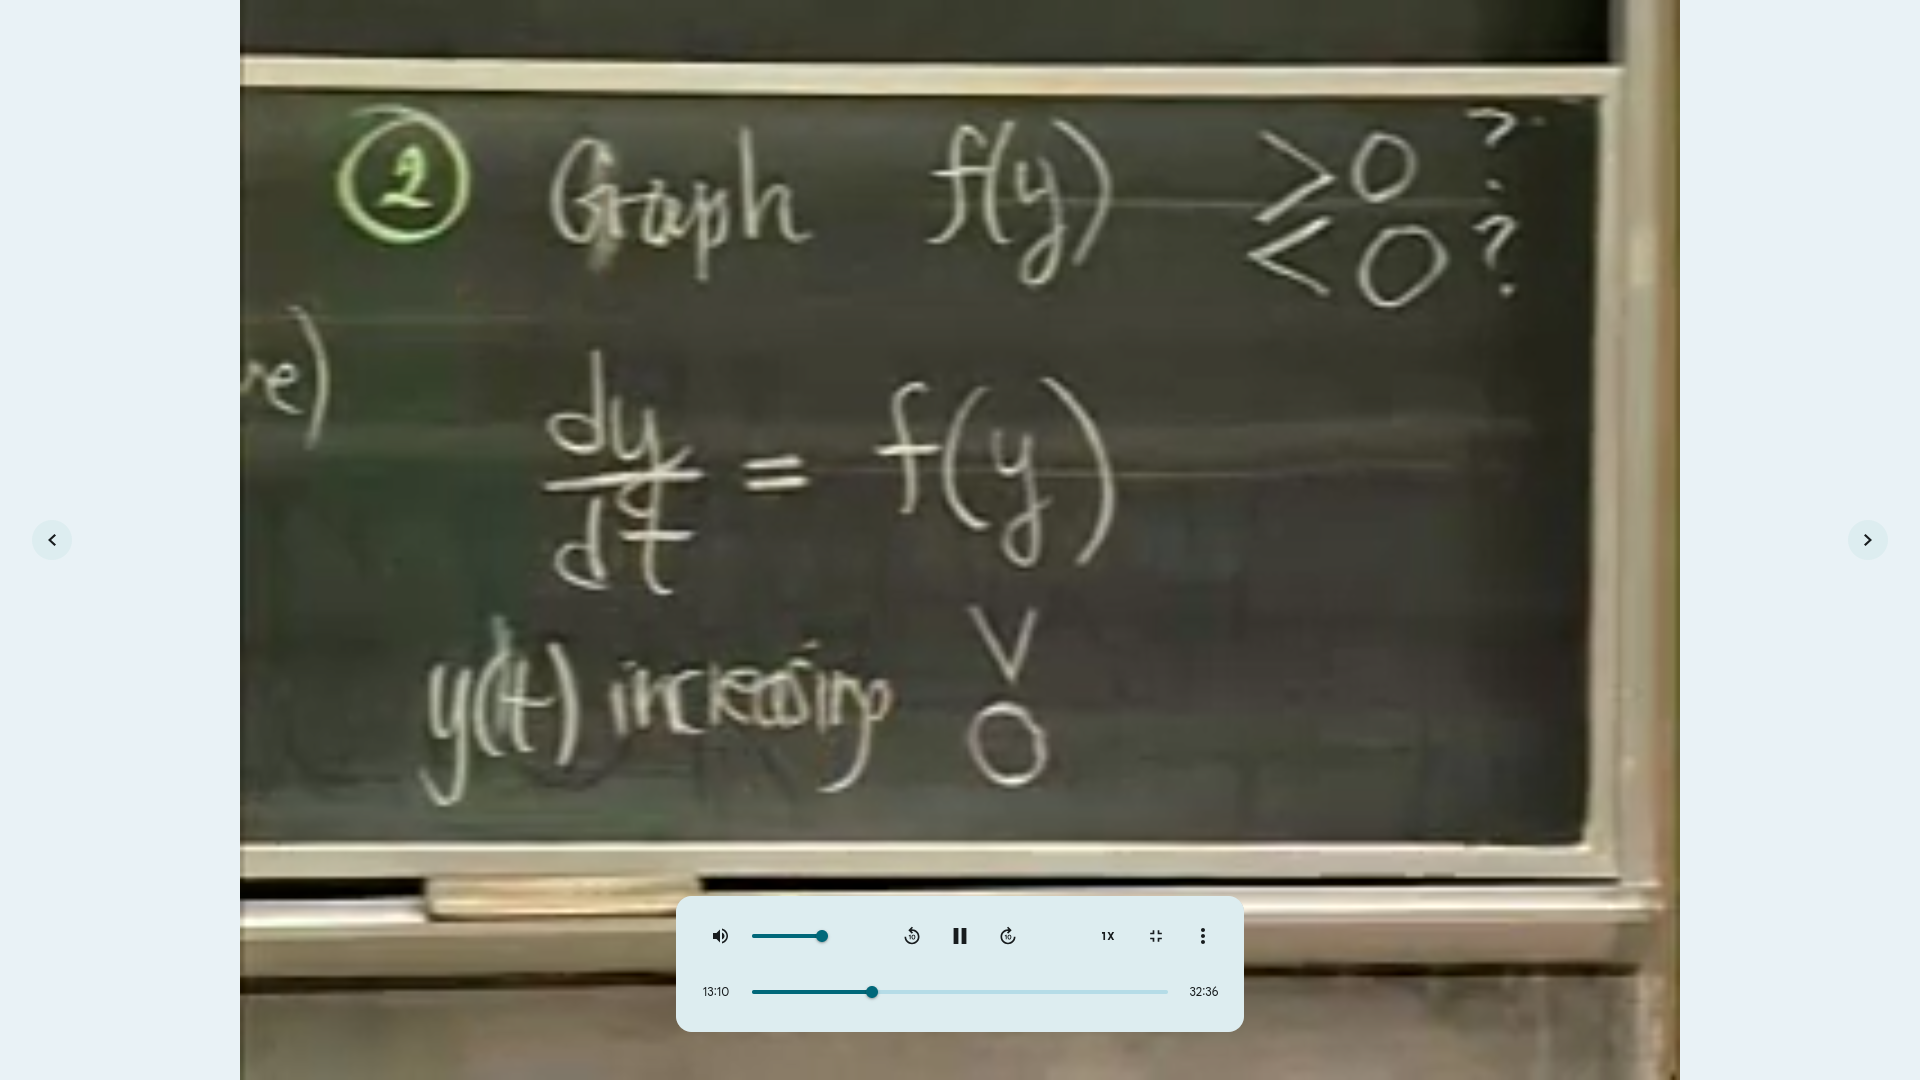 ② Graph f(y) > 0 ?
< 0 ?
re)
dy/dt = f(y)
V
y(t) increasing 0
1X
13:10 32:36